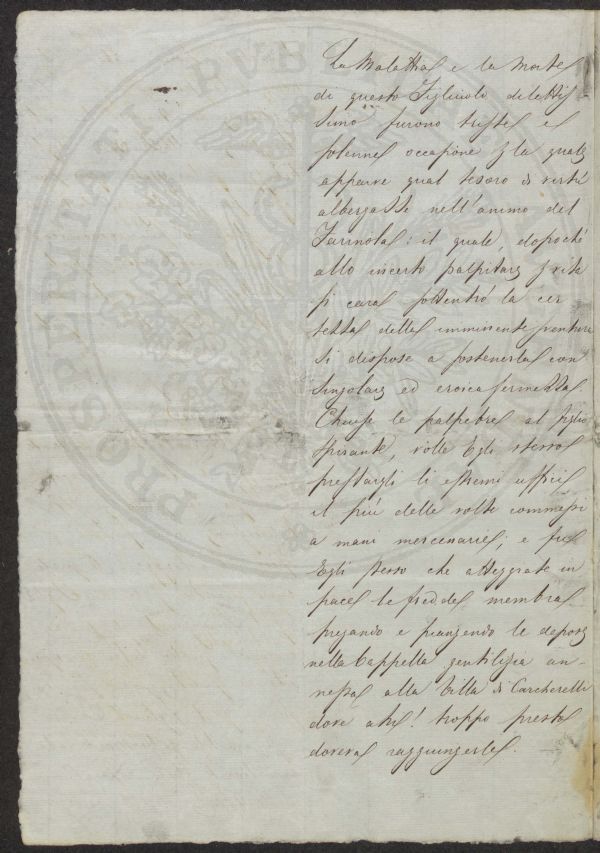 La Malattia e la Morte
di questo Figliuolo dilettis
simo furono triste e
solenne occasione p la quale
apparve qual tesoro di virtù
albergasse nell'animo del
Farinola: il quale, dopochè
allo incerto palpitare p vita
sì cara sottentrò la cer
tezza della imminente sventura
si dispose a sostenerla con
singolare ed eroica fermezza
Chiuse le palpebre al figlio
spirante, volle Egli stesso
prestargli li estremi uffici
il più delle volte commessi
a mani mercenarie; e fu
Egli stesso che atteggiate in
pace le fredde membra
pregando e piangendo le depose
nella Cappella gentilizia an-
nessa alla Villa di Carcherelli
dove ahi! troppo presto
doveva raggiungerle.